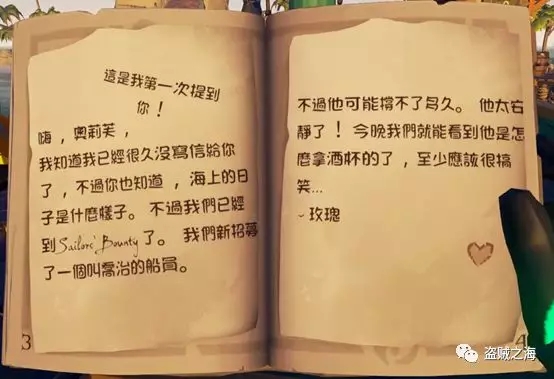 這是我第一次提到
你！
嗨，奧莉芙，
我知道我已經很久沒寫信給你
了，不過你也知道，海上的日
子是什麼樣子。不過我們已經
到Sailors' Bounty了。我們新招募
了一個叫喬治的船員。
3
不過他可能撐不了多久。他太安
靜了！今晚我們就能看到他是怎
麼拿酒杯的了，至少應該很搞
笑...
~玫瑰
4
盗贼之海